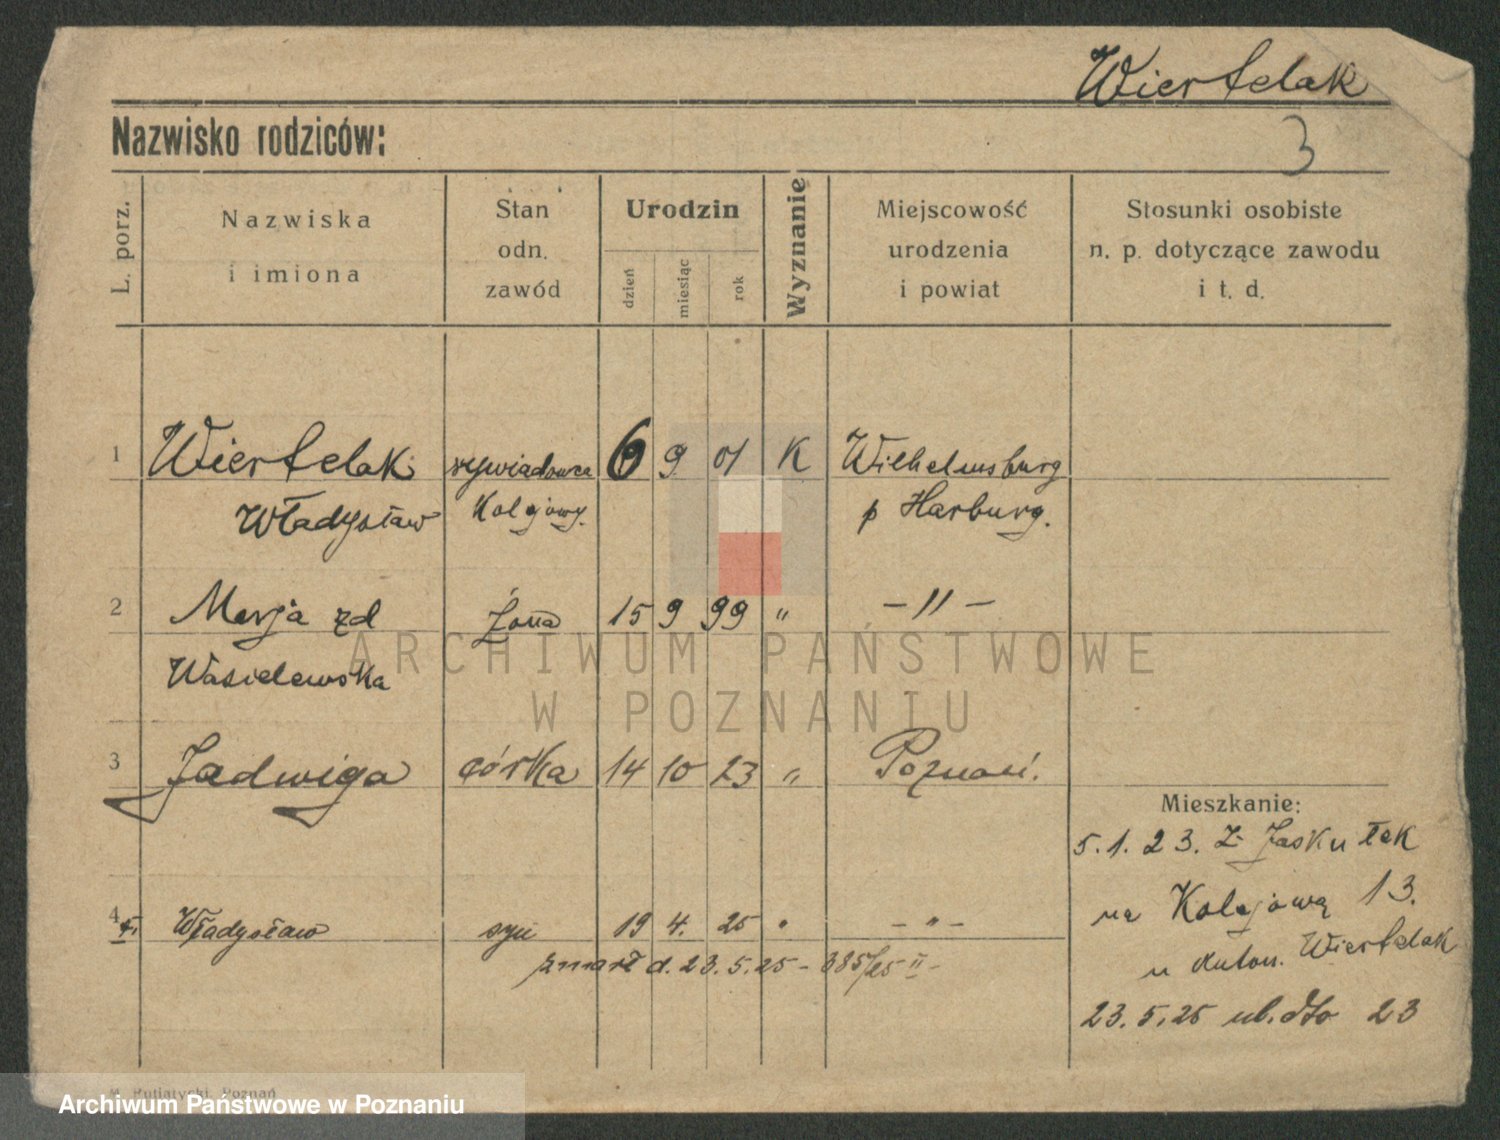 Wiertelak
Nazwisko rodziców:
3
L. porz.
Nazwiska
i imiona
Stan
odn.
zawód
Urodzin
dzień
miesiąc
rok
Wyznanie
Miejscowość
urodzenia
i powiat
Stosunki osobiste
n. p. dotyczące zawodu
i t. d.
1 Wiertelak wywiadowca 6 9 01 K Wilhelmsburg
Władysław Kolejowy. p Harburg.
2 Marja zd żona 15 9 99 " - " -
Wasielewska
3 Jadwiga córka 14 10 23 " Poznań.
Mieszkanie:
5.1.23. z Jaskułek
na Kolejową 13.
u Anton. Wiertelak
23.5.25 ul. dto 23
4 Władysław syn 19 4. 25 " - " -
zmarł d. 23.5.25 - 385/25 II -
ARCHIWUM PAŃSTWOWE
W POZNANIU
Putiatycki, Poznań
Archiwum Państwowe w Poznaniu